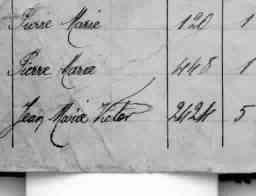 Pierre Marie 120 1
Pierre Marie 448 1
Jean Marie Victor 2424 5